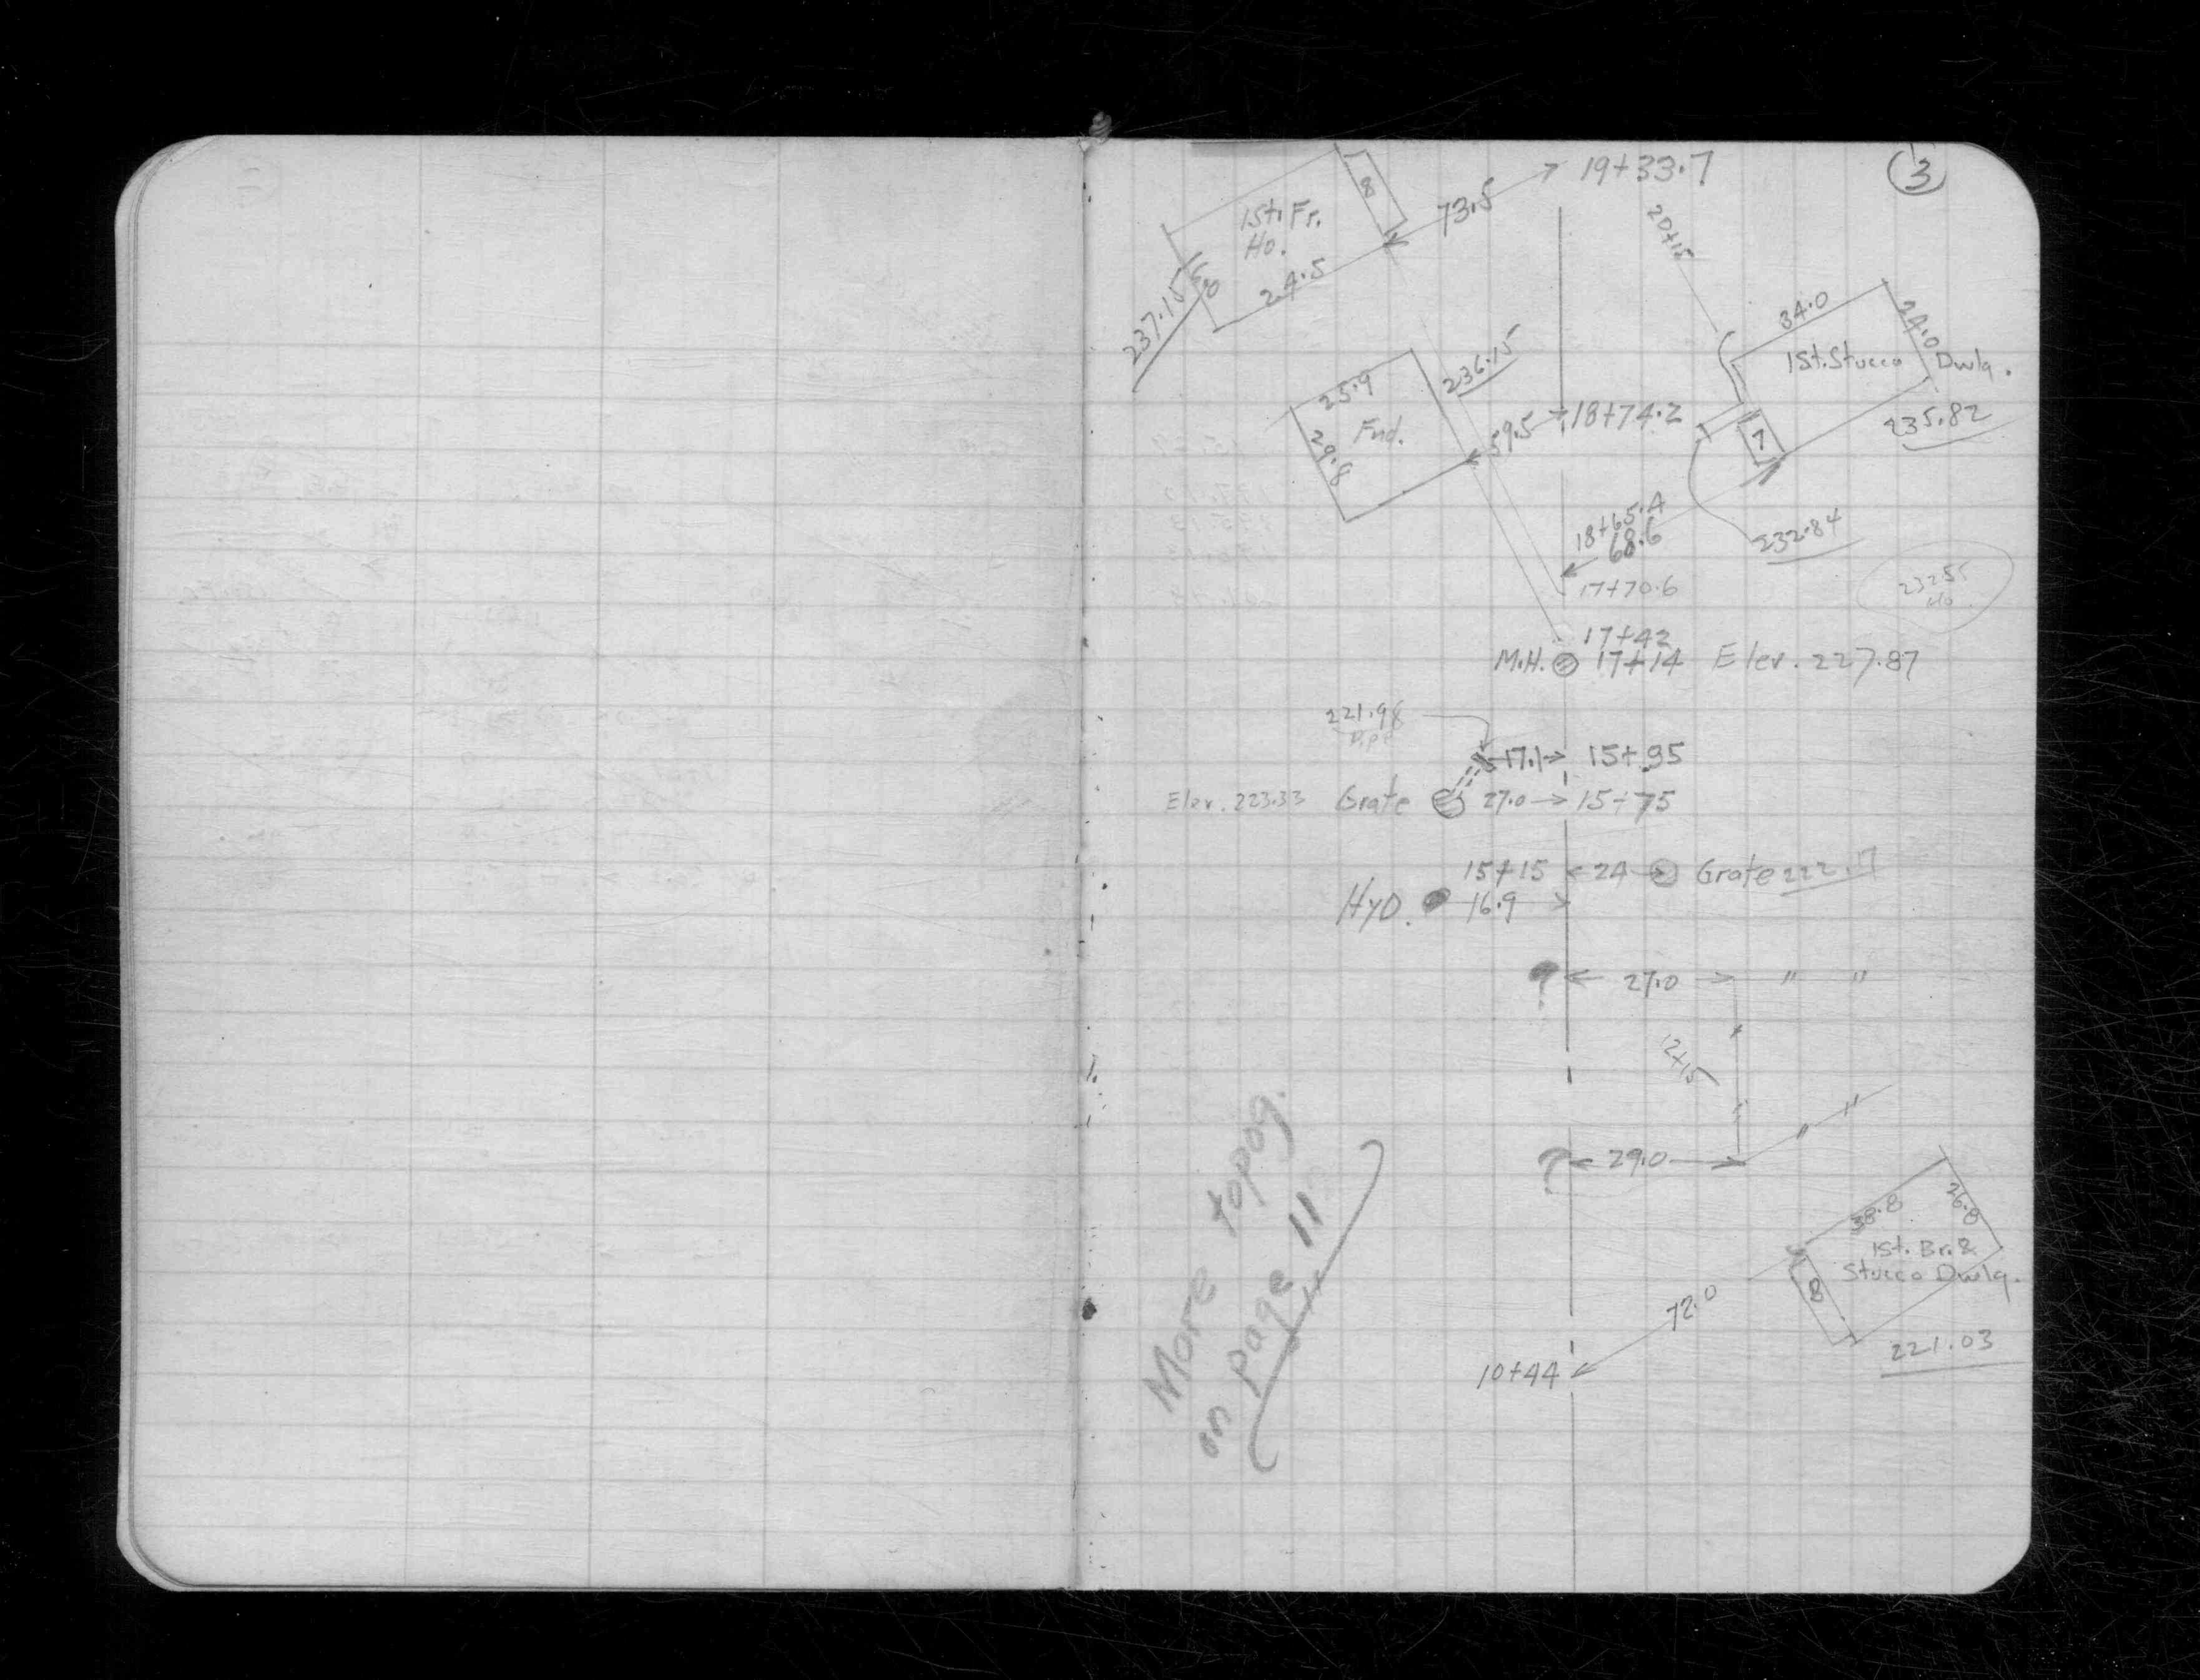 3
19+33.7
8
73.5
1St. Fr.
Ho.
24.5
237.15
20+15
34.0
24.0
1St. Stucco Dwlg.
235.82
7
236.15
25.9
Fnd.
29.8
59.5
18+74.2
18+65.4
68.6
232.84
17+70.6
17+42
M.H. 17+14 Elev. 227.87
221.98
Pipe
17.1 15+95
Elev. 223.33 Grate 27.0 15+75
15+15 24 Grate 222.17
Hyd. 16.9
? 27.0 " "
12+15
" "
? 29.0
38.8
26.8
1St. Br. &
Stucco Dwlg.
8
72.0
221.03
10+44
More topog.
on page 11